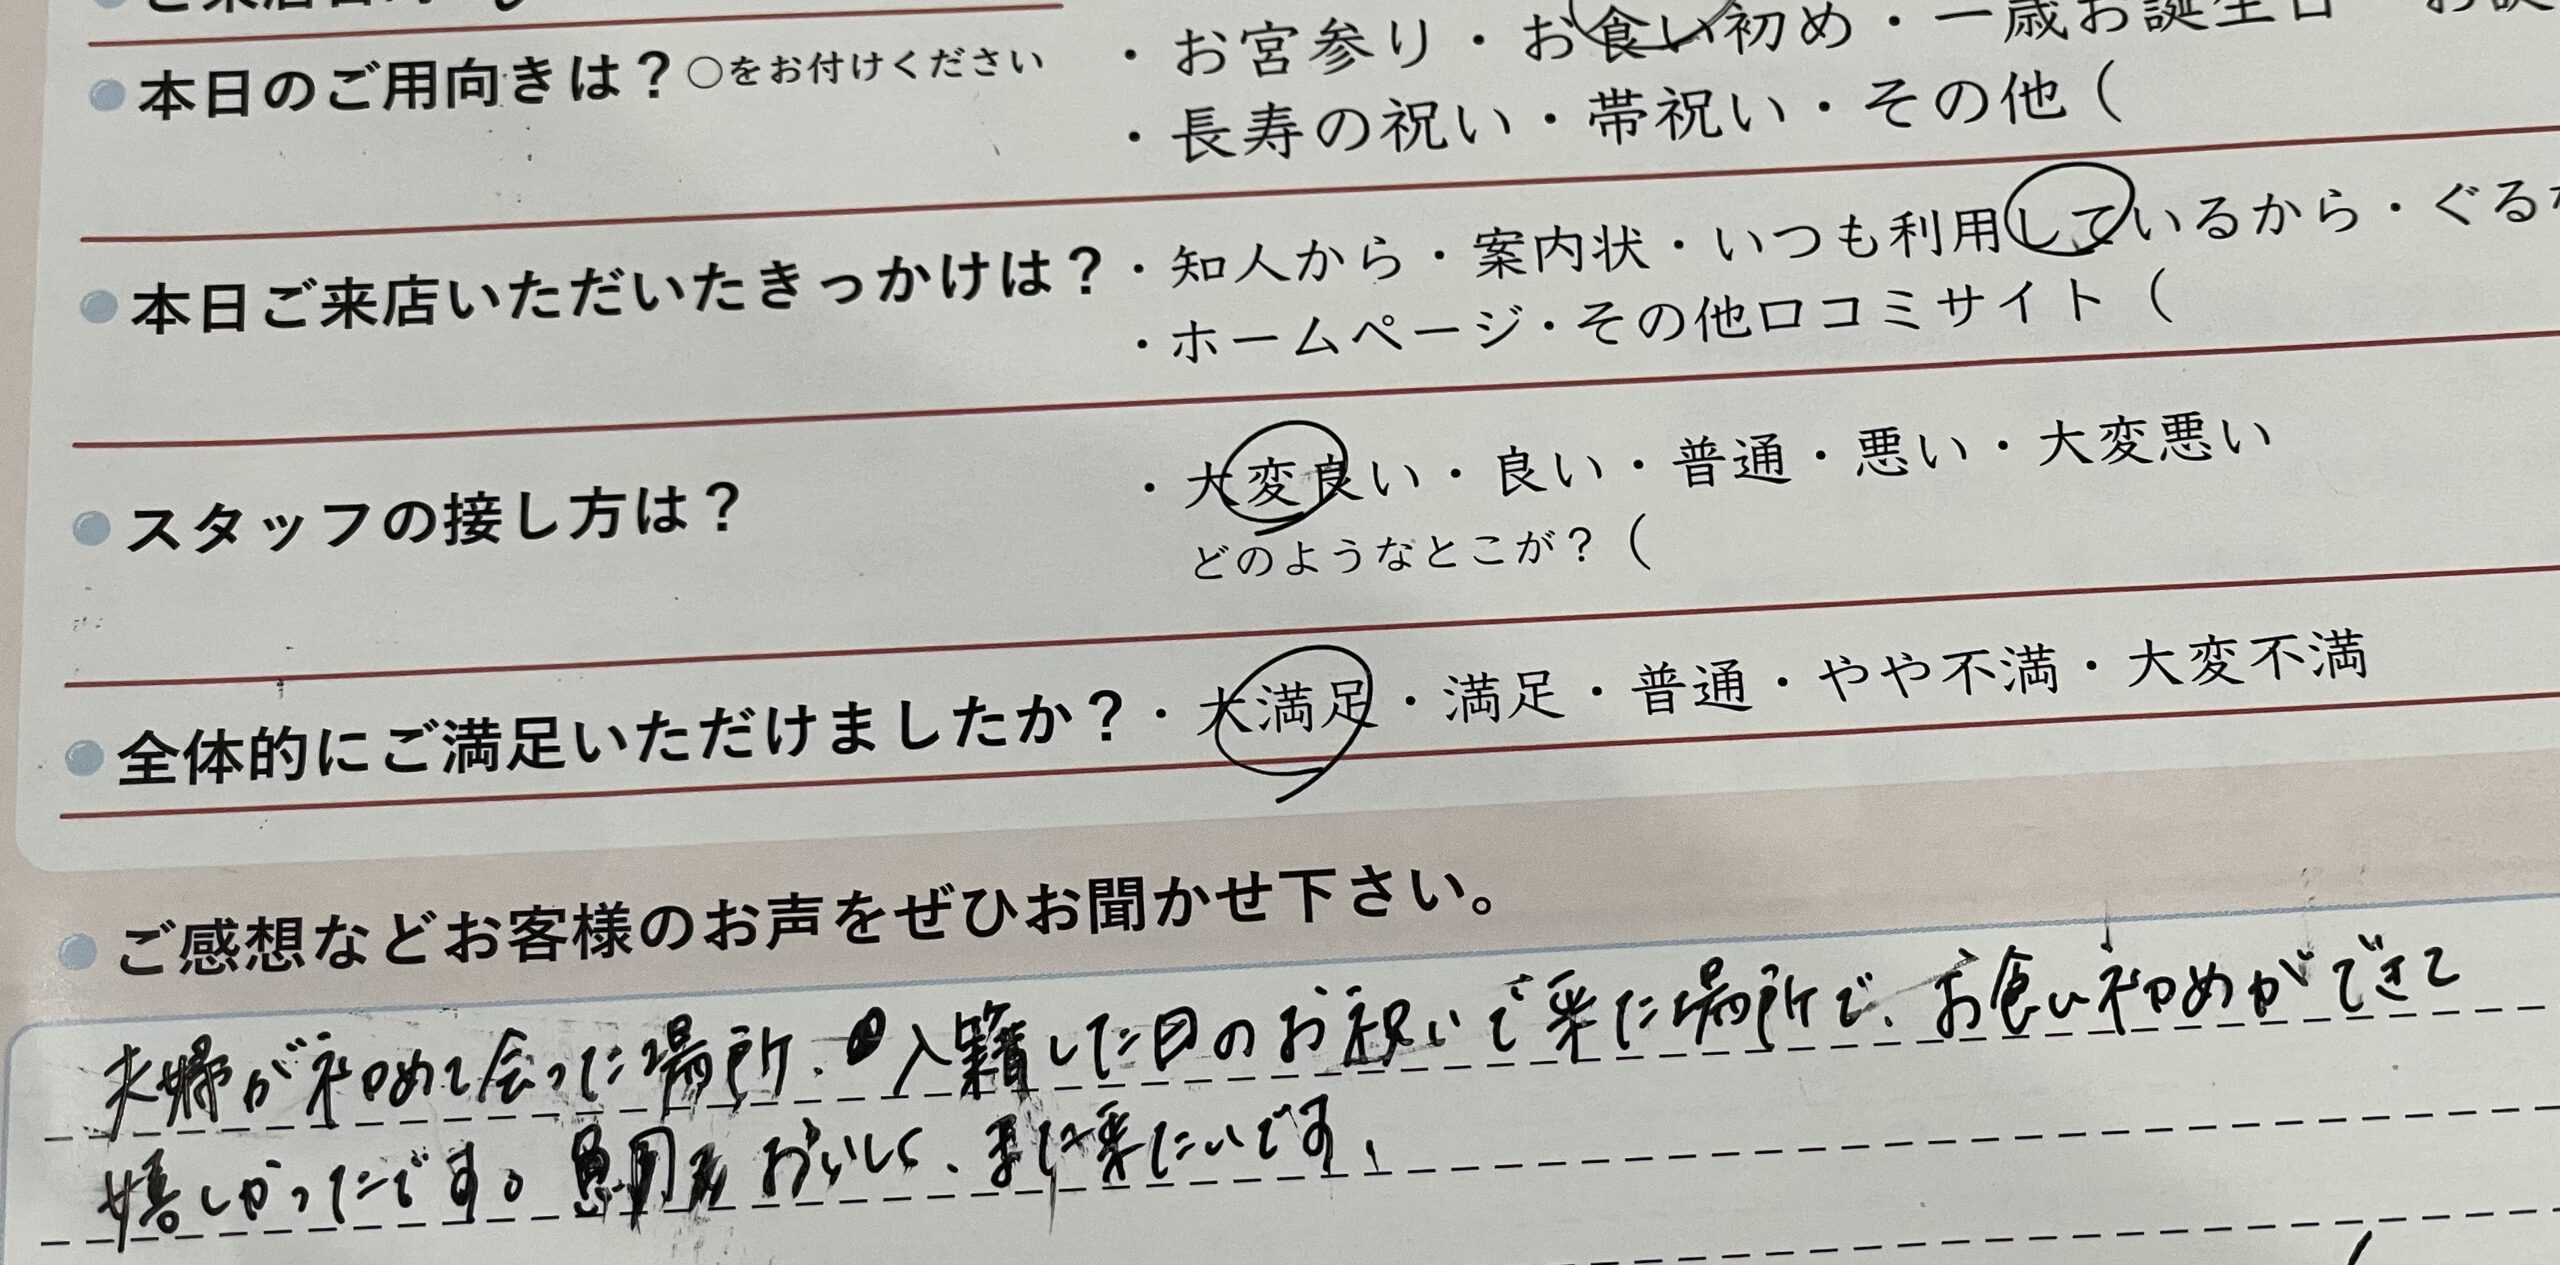 本日のご用向きは？○をお付けください
・お宮参り・お食い初め・一歳お誕生日
・長寿の祝い・帯祝い・その他（
本日ご来店いただいたきっかけは？
・知人から・案内状・いつも利用しているから・ぐる
・ホームページ・その他口コミサイト（
スタッフの接し方は？
・大変良い・良い・普通・悪い・大変悪い
どのようなとこが？（
全体的にご満足いただけましたか？・大満足・満足・普通・やや不満・大変不満
ご感想などお客様のお声をぜひお聞かせ下さい。
夫婦が初めて会った場所、入籍した日のお祝いで来た場所で、お食い初めができて
嬉しかったです。おいしく、また来たいです。